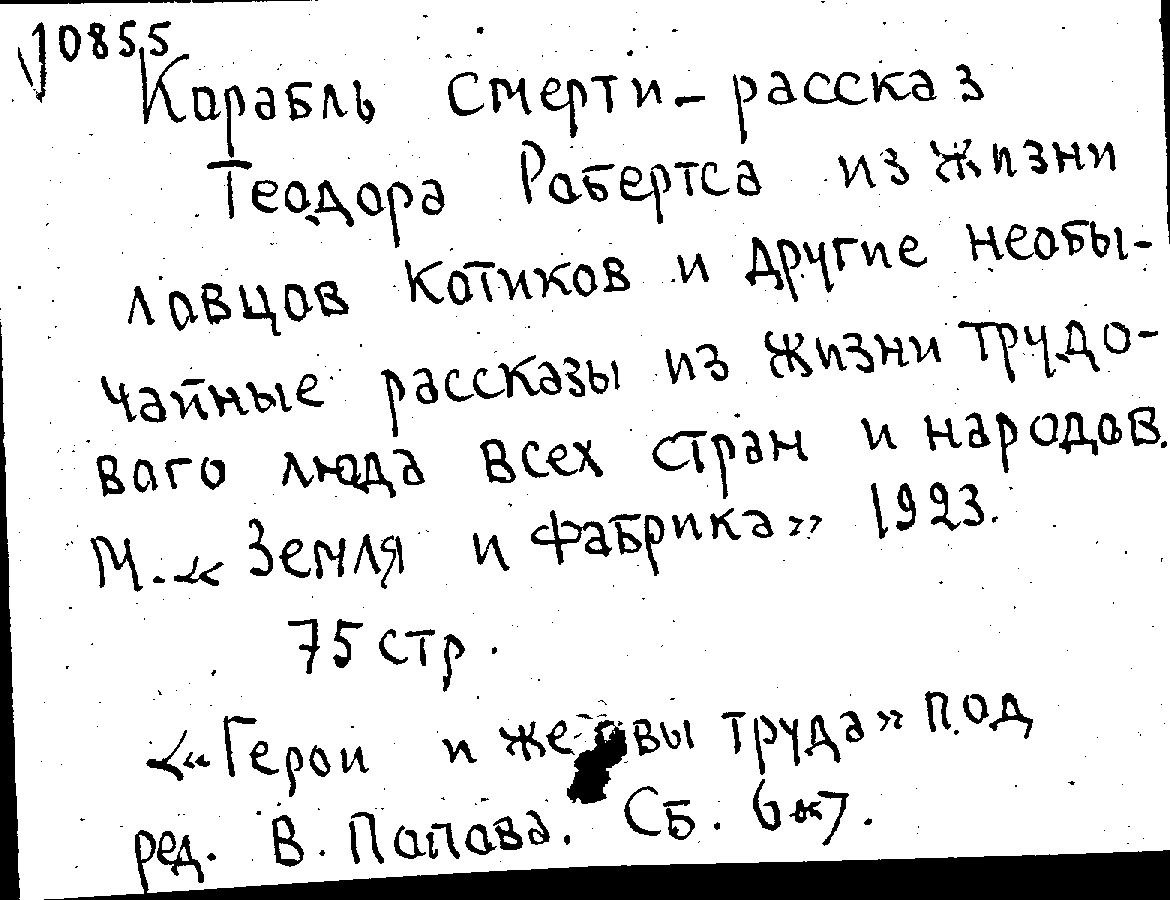 10855
Корабль Смерти - рассказ
Теодора Робертса из жизни
ловцов котиков и другие необы-
чайные рассказы из жизни трудо-
вого люда всех стран и народов.
М. - « Земля и Фабрика» 1923.
75 стр.
« Герои и жертвы труда» под
ред. В. Попова. Сб. 6 и 7.